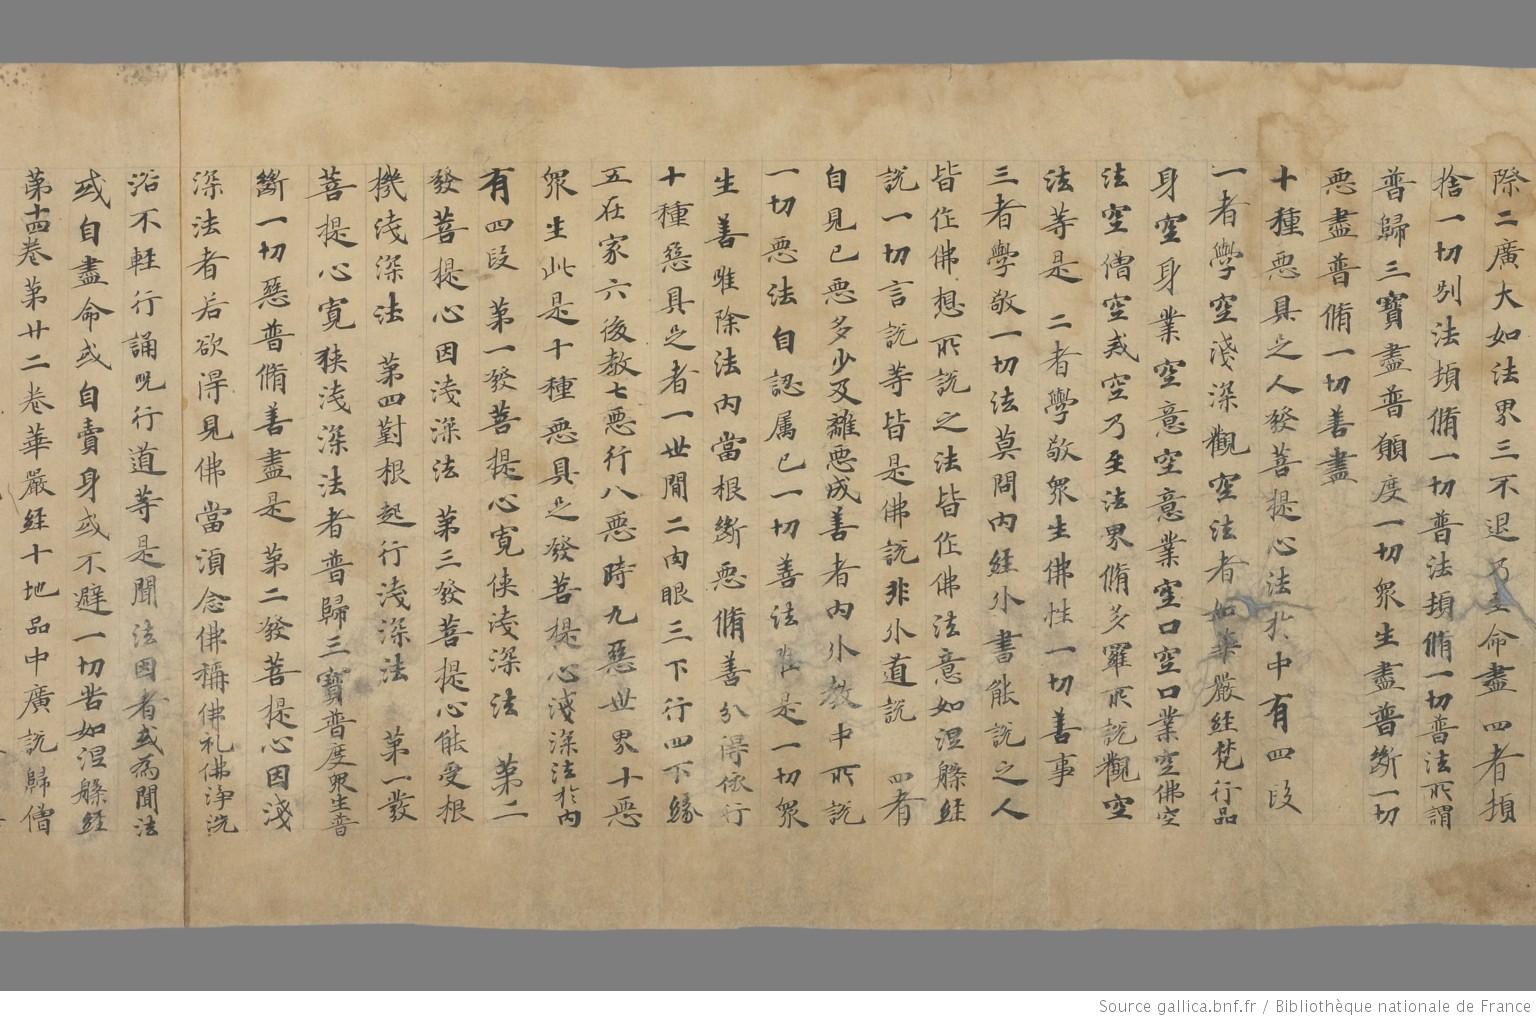 際二廣大如法界三不退乃至命盡四者揁
捨一切別法揁脩一切普法揁脩一切普法所謂
普歸三寶盡普願度一切衆生盡普斷一切
悪盡普脩一切善盡
十種悪具足人發菩提心法於中有四段
一者學空淺深觀空法者如華嚴経梵行品
身空身業空意空意業空口空口業空佛空
法空僧空戒空乃至法界脩多羅所說觀空
法等是 二者學敬衆生佛性一切善事
三者學敬一切法莫問内経外書能說之人
皆作佛想所說之法皆作佛法意如涅槃経
說一切言說等皆是佛說非外道說 四者
自見已悪多少及離悪成善者内外教中所說
一切悪法自認属已一切善法唯是一切衆
生善唯除法内當根斷悪脩善分得依行
十種惡具足者一世間二肉眼三下行四下緣
五在家六後教七悪行八悪時九惡世界十悪
衆生此是十種悪具足發菩提心淺深法於内
有四段 第一發菩提心寬侠淺深法 第二
發菩提心因淺深法 第三發菩提心能受根
機淺深法 第四對根起行淺深法 第一發
菩提心寬狹淺深法者普歸三寶普度衆生普
斷一切惡普脩善盡是 第二發菩提心因淺
深法者若欲得見佛當湏念佛稱佛礼佛淨洗
浴不輕行誦呪行道等是聞法因者或為聞法
或自盡命或自賣身或不避一切苦如涅槃経
第十四卷第廿二卷華嚴経十地品中廣說歸僧